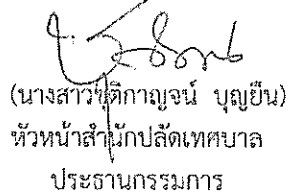 (นางสาวชุติกาญจน์ บุญยืน)
หัวหน้าสำนักปลัดเทศบาล
ประธานกรรมการ